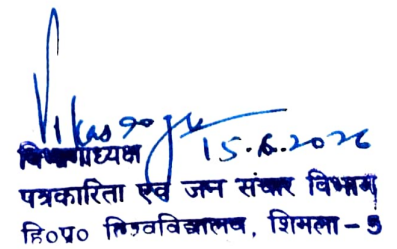 Vikas
15.6.2026
विभागाध्यक्ष
पत्रकारिता एवं जन संचार विभाग
हि०प्र० विश्वविद्यालय, शिमला - 5